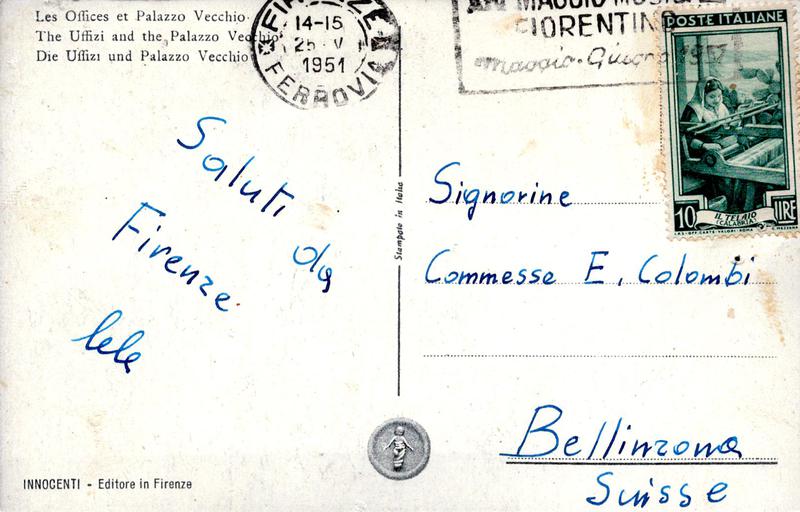 Les Offices et Palazzo Vecchio
The Uffizi and the Palazzo Vecchio
Die Uffizi und Palazzo Vecchio
14-15
25 V
1951
FERROVIA
MAGGIO
FIORENTINO
Maggio-Giugno 1951
POSTE ITALIANE
10 LIRE
IL TELAIO
(CALABRIA)
Saluti
da
Firenze
lele
Stampato in Italia
Signorine
Commesse E. Colombi
Bellinzona
Suisse
INNOCENTI - Editore in Firenze